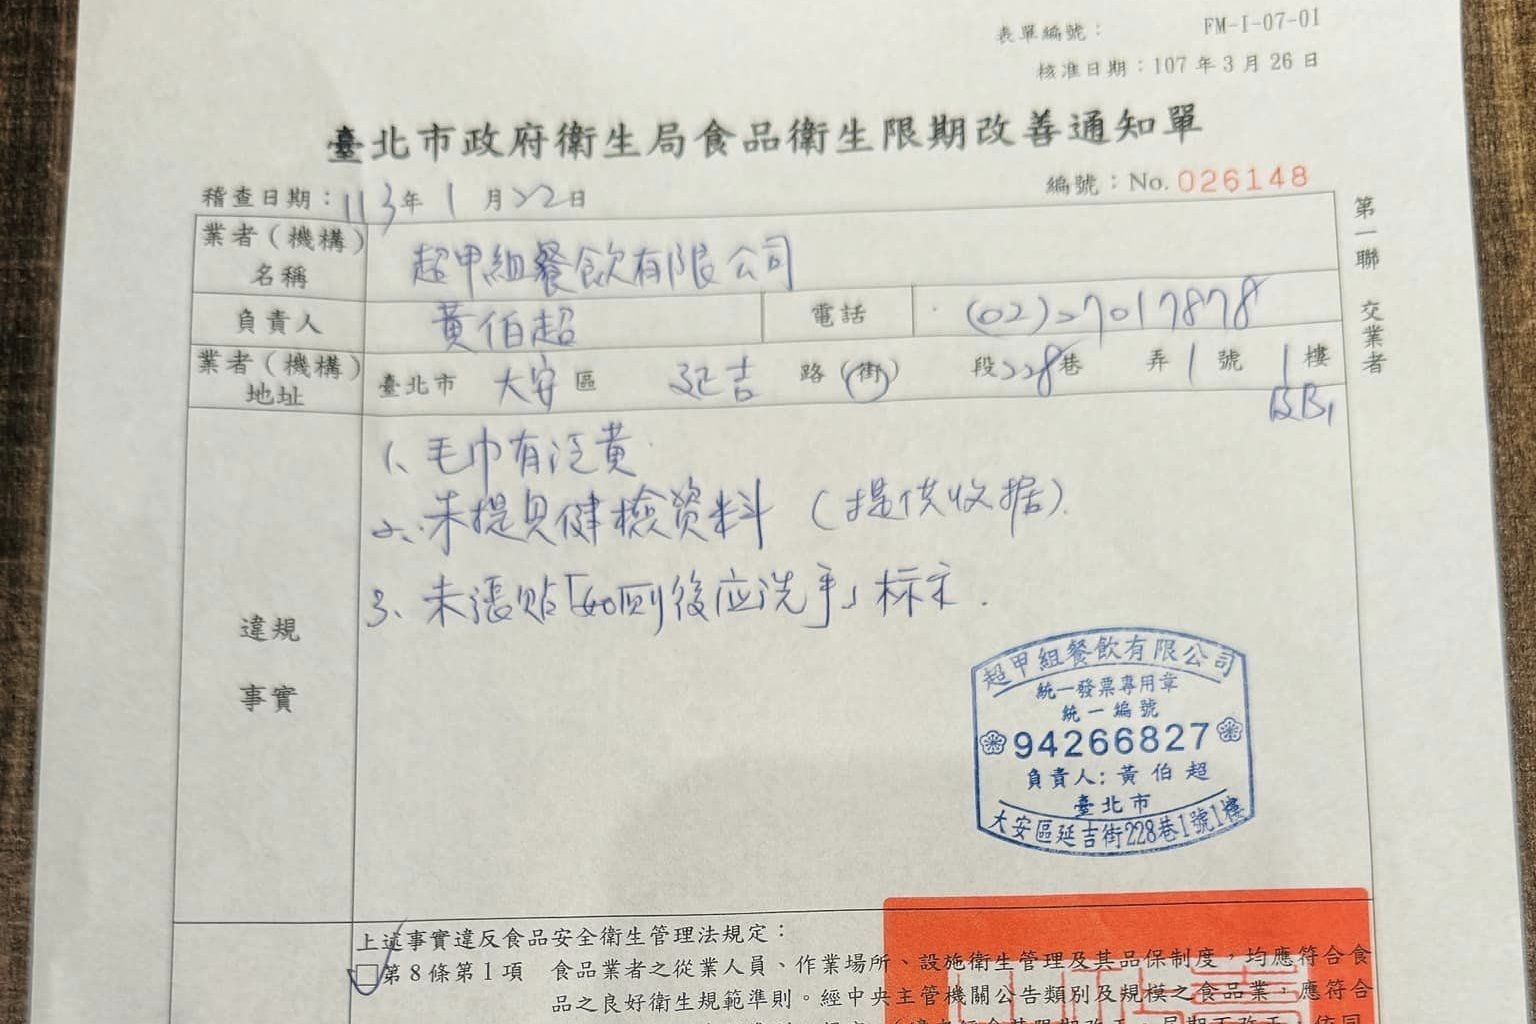 表單編號： FM-I-07-01
核准日期：107年3月26日
臺北市政府衛生局食品衛生限期改善通知單
稽查日期：113年1月22日
編號：No. 026148
第一聯 交業者
業者（機構）名稱 超甲組餐飲有限公司
負責人 黃伯超 電話 (02)27017878
業者（機構）地址 臺北市 大安區 延吉 路(街) 段228巷 弄1號 1樓
&B1
違規事實
1、毛巾有泛黃.
2、未提具健檢資料（提供收据）.
3、未張貼「如厠後应洗手」标示.
超甲組餐飲有限公司
統一發票專用章
統一編號
94266827
負責人：黃伯超
臺北市
大安區延吉街228巷1號1樓
上述事實違反食品安全衛生管理法規定：
□第8條第1項 食品業者之從業人員、作業場所、設施衛生管理及其品保制度，均應符合食
品之良好衛生規範準則。經中央主管機關公告類別及規模之食品業，應符合